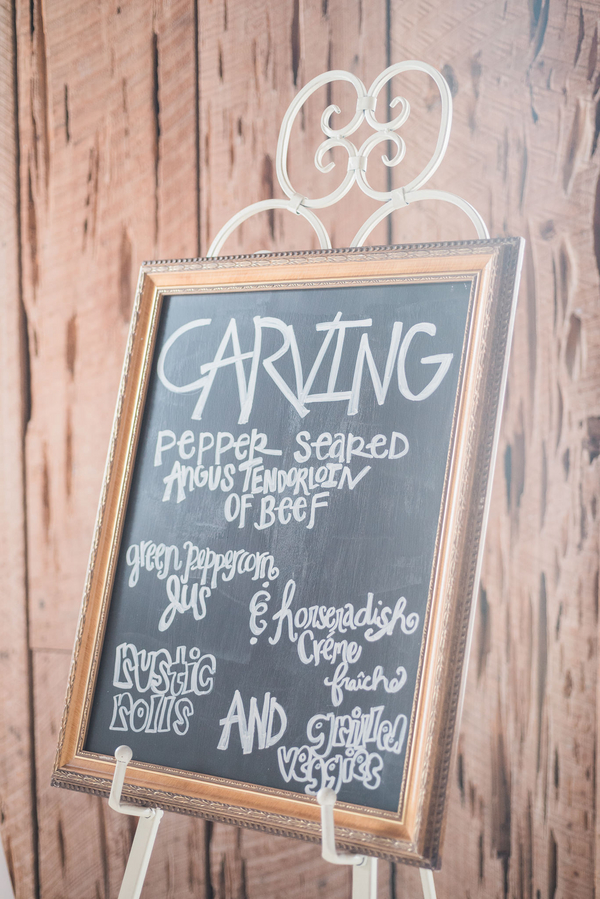 CARVING
PEPPER SEARED
ANGUS TENDORLOIN
OF BEEF
green peppercorn
Jus
& horseradish
Crème
fraîche
rustic
rolls
AND
grilled
veggies